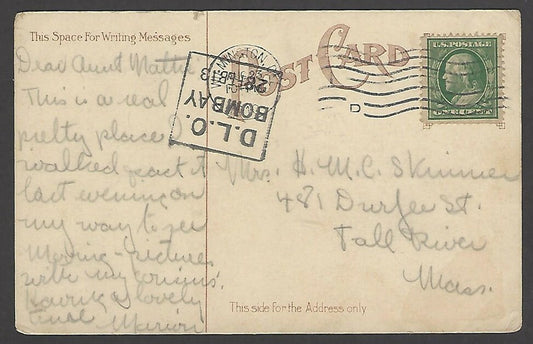 This Space For Writing Messages
POST CARD
U.S. POSTAGE
D.L.O.
BOMBAY
D
Dear Aunt Mattie
This is a real
pretty place I
walked past it
last evening on
my way to see
Moving-pictures
with my cousins.
Having a lovely
time Marion
Mrs. H. M. C. Skinner
481 Durfee St.
Fall River
Mass.
This side for the Address only